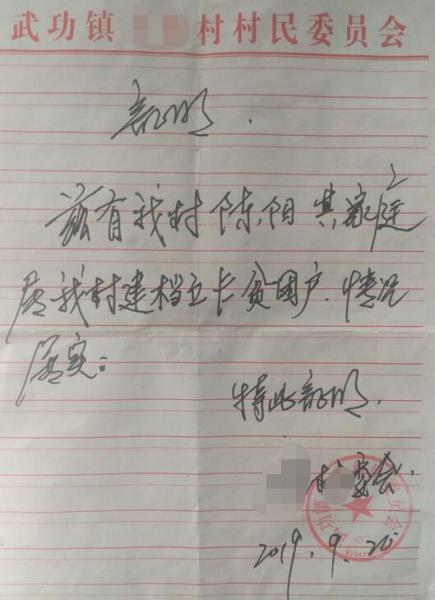 武功镇 村村民委员会
证明
兹有我村陈阳其家庭
属我村建档立卡贫困户.情况
属实:
特此证明.
村委会.
2019.9.20